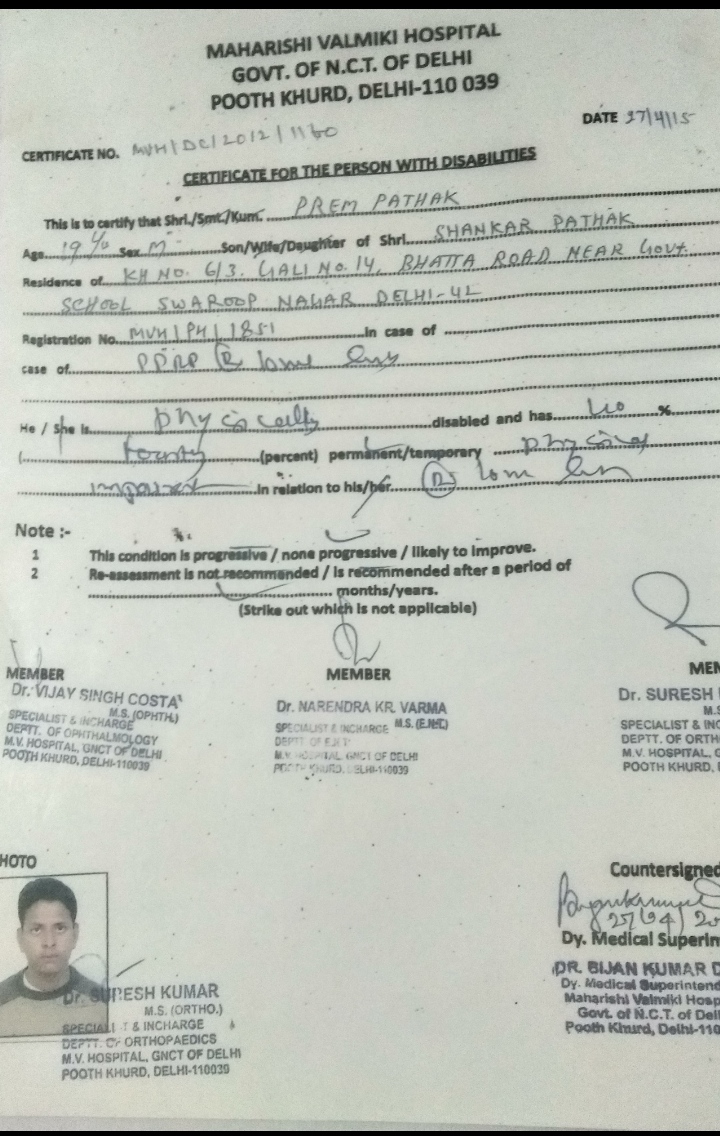 MAHARISHI VALMIKI HOSPITAL
GOVT. OF N.C.T. OF DELHI
POOTH KHURD, DELHI-110 039
DATE 27/4/15
CERTIFICATE NO. MVH/DC/2012/1160
CERTIFICATE FOR THE PERSON WITH DISABILITIES
This is to certify that Shri./Smt./Kum. PREM PATHAK
Age 19 Sex M Son/Wife/Daughter of Shri. SHANKAR PATHAK
Residence of KH NO. 6/3. GALI No. 14, BHATTA ROAD NEAR GOVT.
SCHOOL SWAROOP NAGAR DELHI-42
Registration No. MVH/PH/1851 In case of
case of PPRP (R) lower limb
He / She is physically disabled and has 40 %
( Forty (percent) permanent/temporary physical
impairment in relation to his/her (R) lower limb
Note :-
1 This condition is progressive / none progressive / likely to improve.
2 Re-assessment is not recommended / is recommended after a period of
months/years.
(Strike out which is not applicable)
MEMBER
Dr. VIJAY SINGH COSTA
M.S. (OPHTH.)
SPECIALIST & INCHARGE
DEPTT. OF OPHTHALMOLOGY
M.V. HOSPITAL, GNCT OF DELHI
POOTH KHURD, DELHI-110039
MEMBER
Dr. NARENDRA KR. VARMA
SPECIALIST & INCHARGE M.S. (E.N.T.)
DEPTT. OF E.N.T.
M.V. HOSPITAL, GNCT OF DELHI
POOTH KHURD, DELHI-110039
MEM
Dr. SURESH
M.S
SPECIALIST & INC
DEPTT. OF ORTH
M.V. HOSPITAL, G
POOTH KHURD,
HOTO
Dr. SURESH KUMAR
M.S. (ORTHO.)
SPECIALIST & INCHARGE
DEPTT. OF ORTHOPAEDICS
M.V. HOSPITAL, GNCT OF DELHI
POOTH KHURD, DELHI-110039
Countersigned
Dy. Medical Superin
DR. BIJAN KUMAR D
Dy. Medical Superintend
Maharishi Valmiki Hosp
Govt. of N.C.T. of Del
Pooth Khurd, Delhi-110